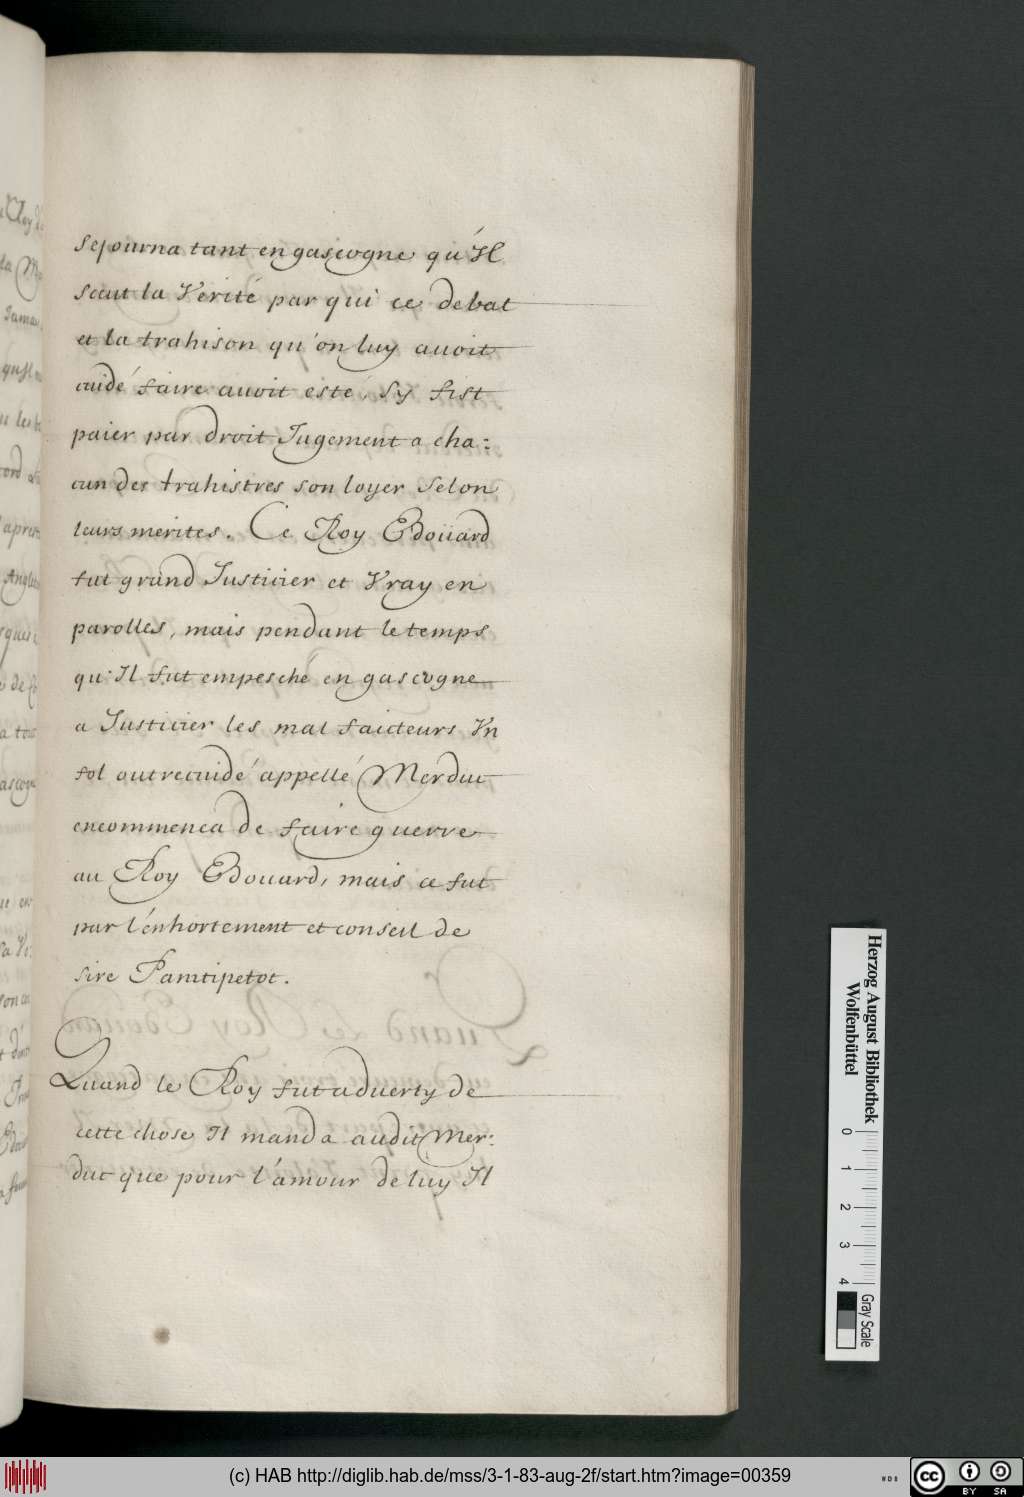 Sejourna tant en gascogne qu'Il
scaut la Verité par qui ce debat
et la trahison qu'on luy avoit
cuidé faire avoit este, Sy fist
paier par droit Jugement a cha:
cun des trahistres son loyer Selon
leurs merites. Ce Roy Edoüard
fut grand Justicier et Vray en
parolles, mais pendant le temps
qu'Il fut empesché en gascogne
a Justicier les mal faicteurs Vn
fol outrecuidé appellé Merduc
encommenca de faire guerre
au Roy Edouard, mais ce fut
par l'énhortement et conseil de
sire Pamtipetot.
Quand le Roy fut aduerty de
cette chose Il manda audit Mer:
duc que pour l'ámour de luy Il
Herzog August Bibliothek
Wolfenbüttel
0 1 2 3 4
Gray Scale
(c) HAB http://diglib.hab.de/mss/3-1-83-aug-2f/start.htm?image=00359
cc BY SA